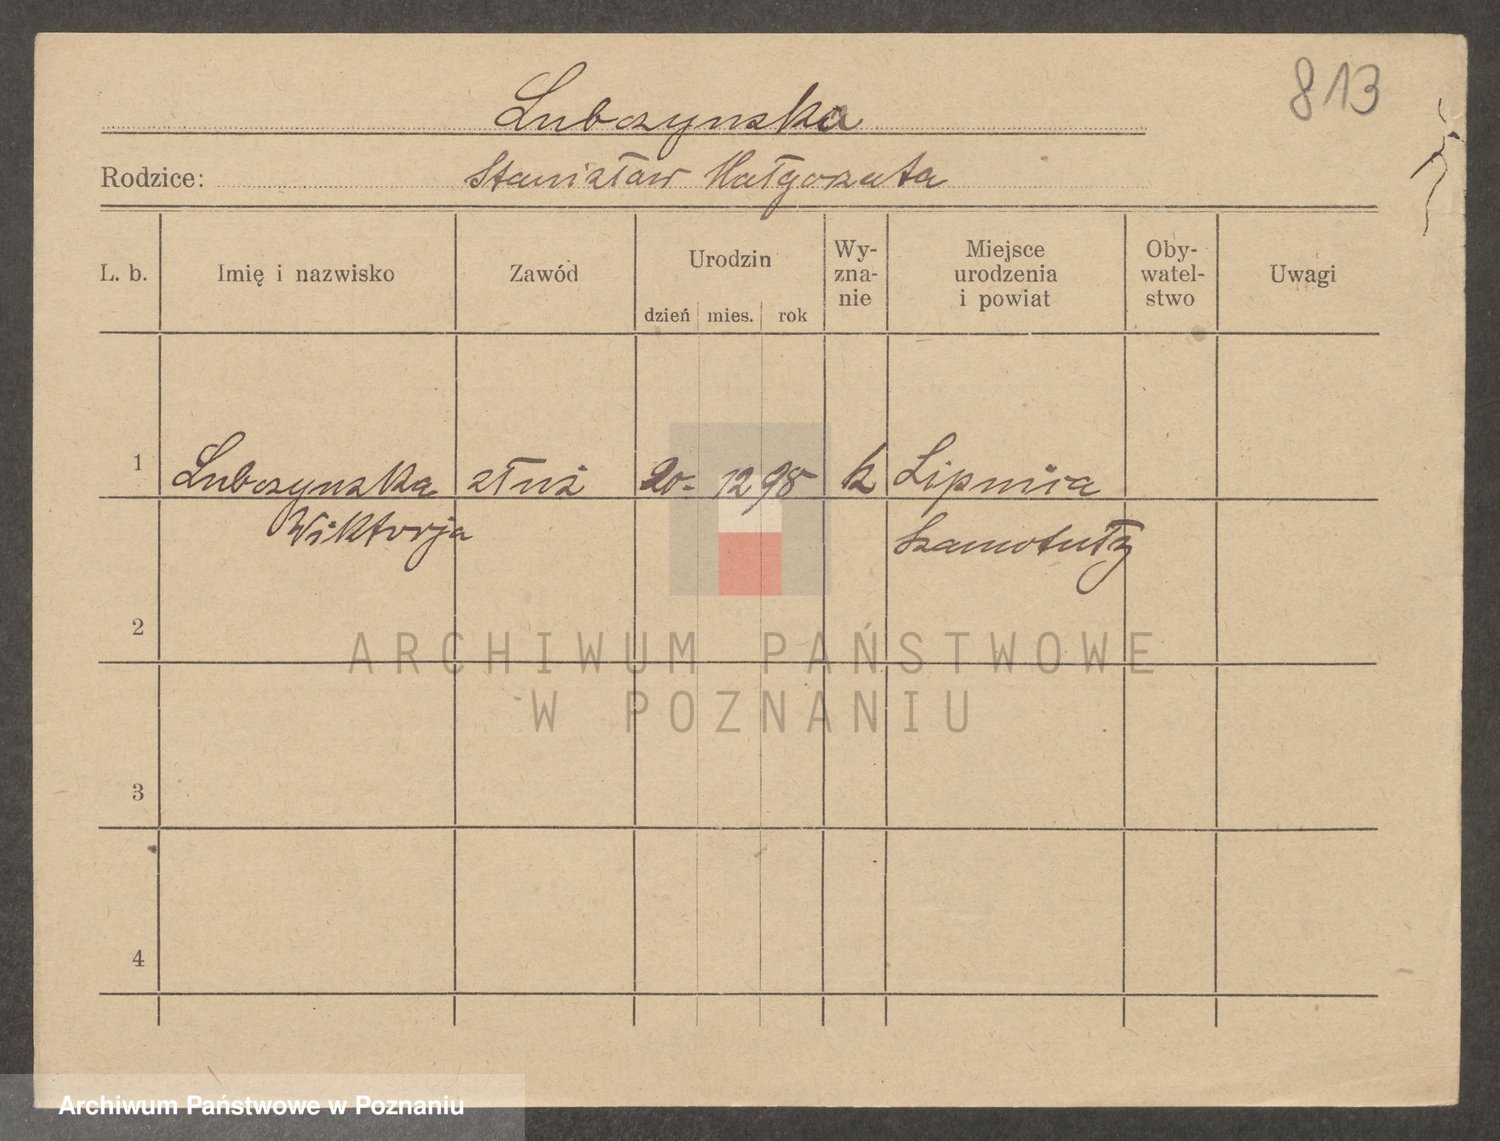 813
Lubczynska
Rodzice: Stanisław Małgorzata
L. b. Imię i nazwisko Zawód Urodzin dzień mies. rok Wy-zna-nie Miejsce urodzenia i powiat Oby-watel-stwo Uwagi
1 Lubczynska służ 20. 12 98 k Lipnica
Wiktorja Szamotuły
2
ARCHIWUM PAŃSTWOWE
W POZNANIU
3
4
Archiwum Państwowe w Poznaniu